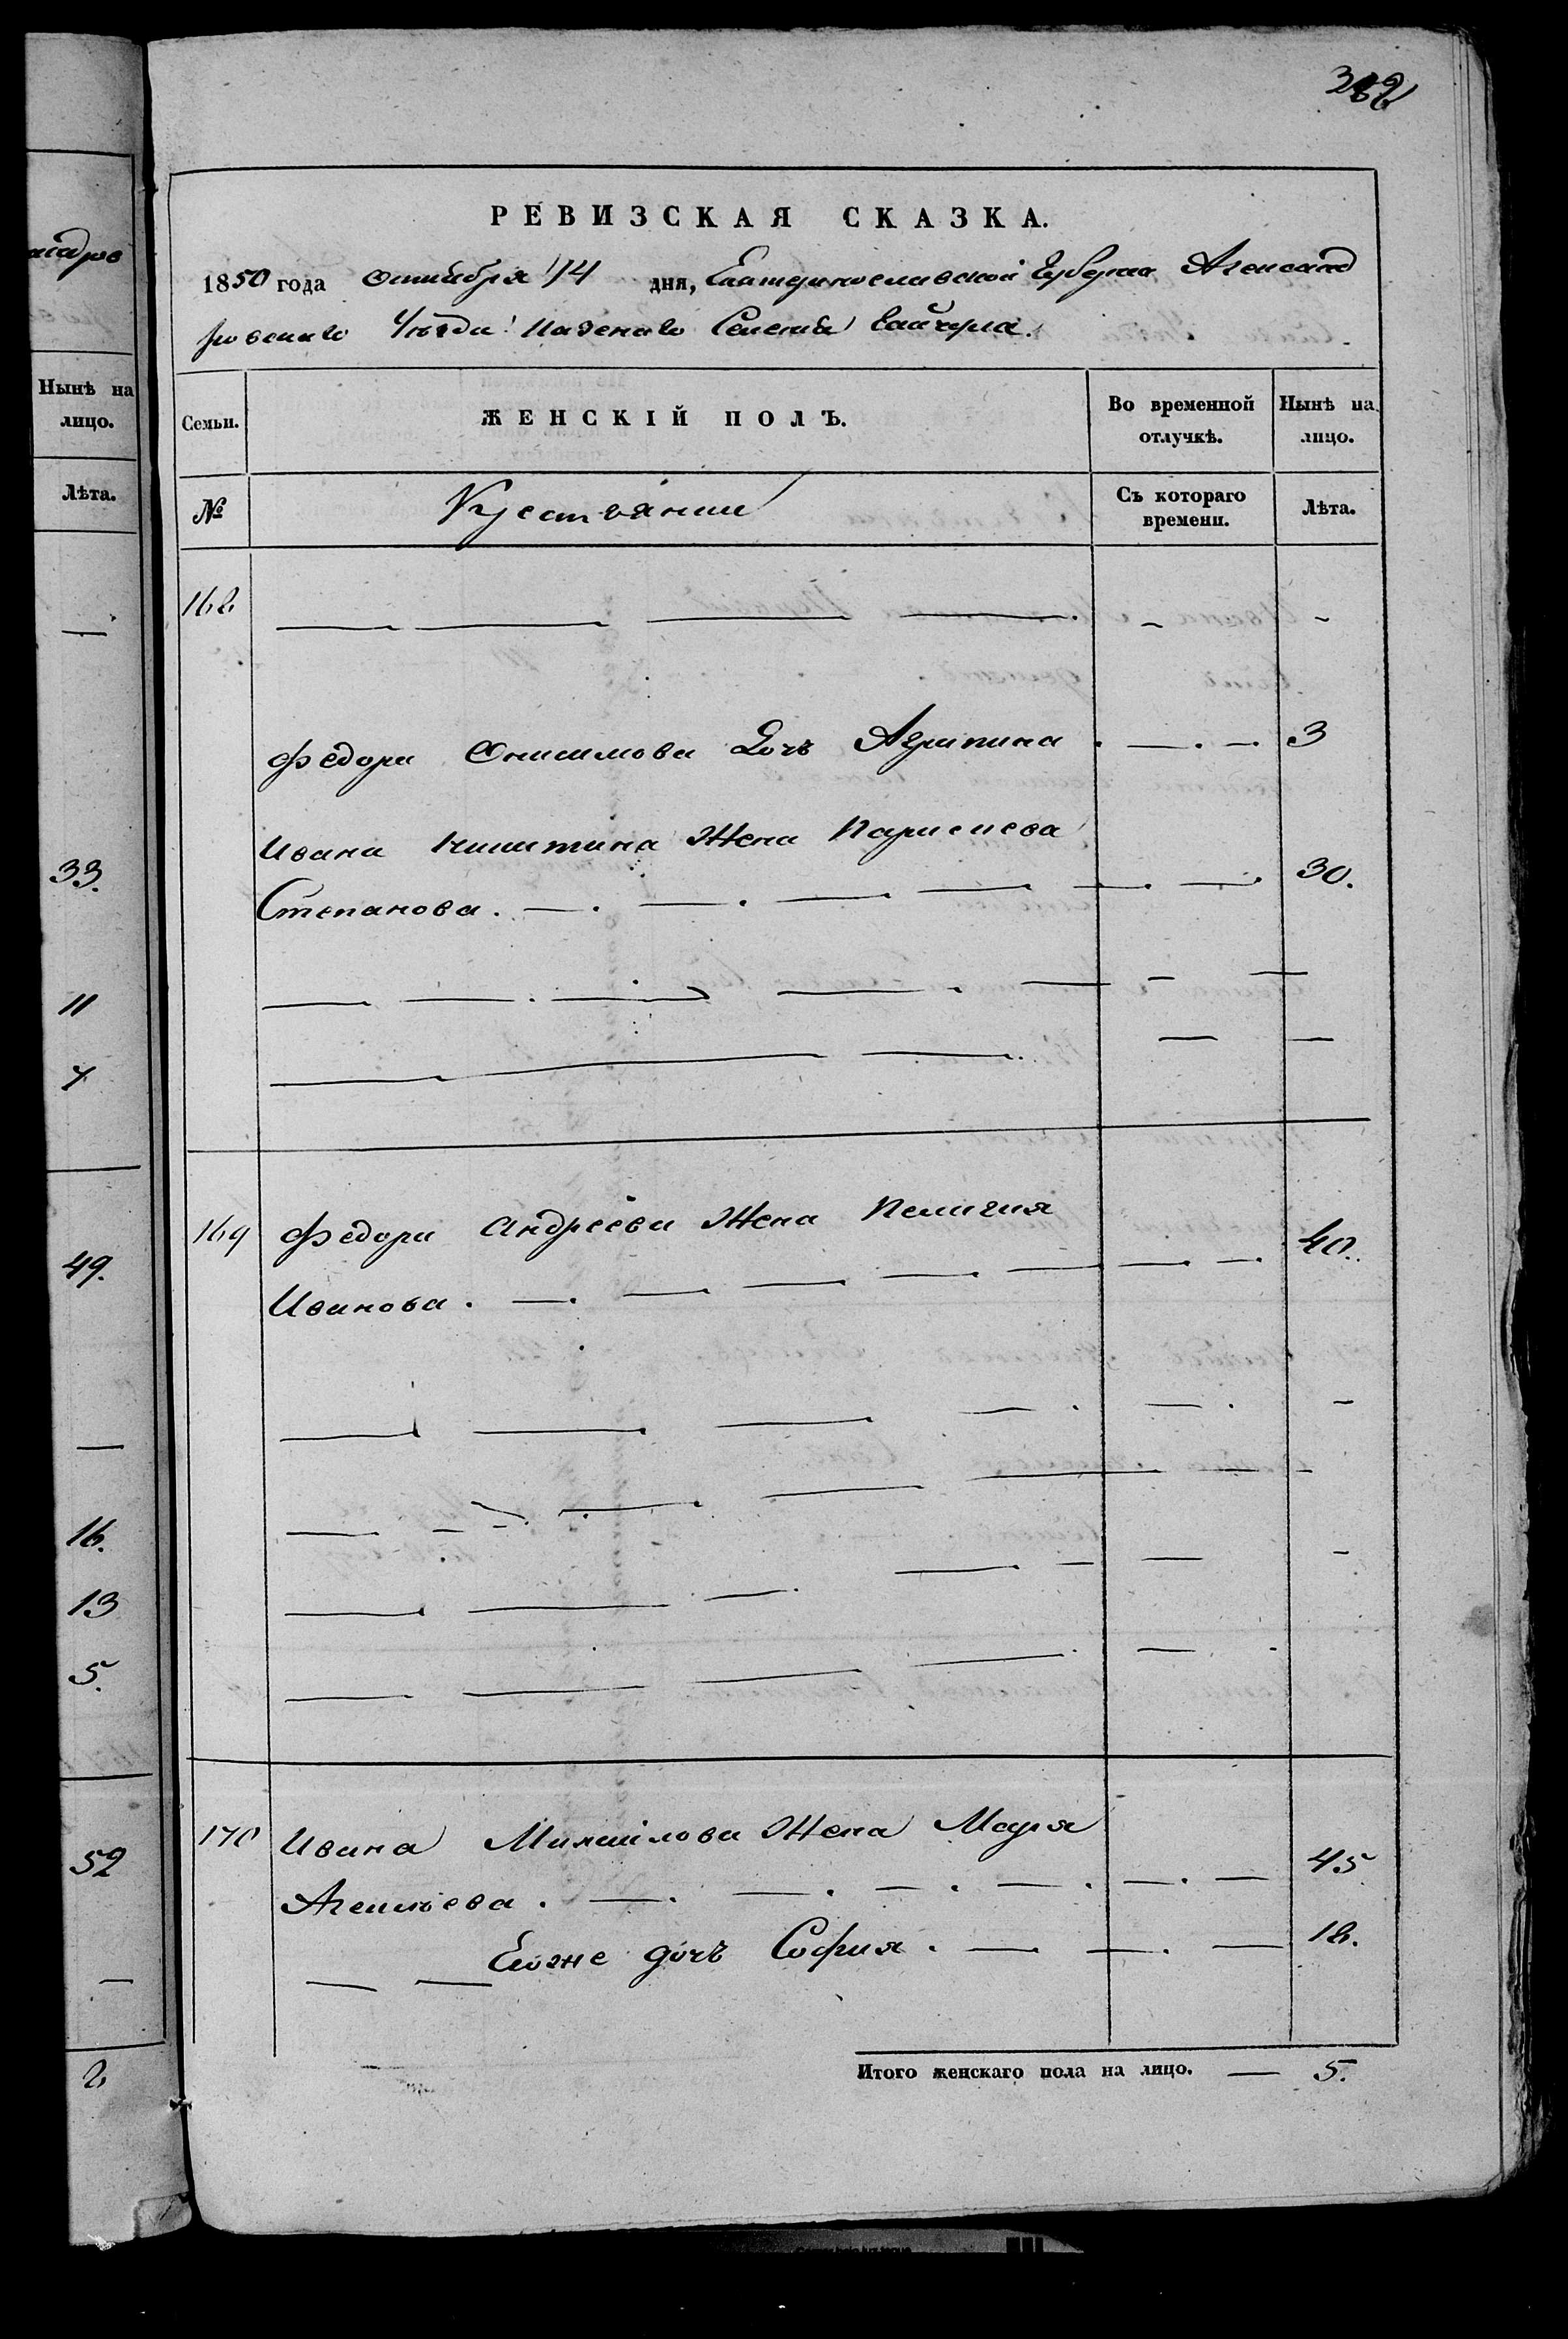 андров
Нынѣ на
лицо.
Лѣта.
33.
11
7
49.
16.
13
5.
52
2
РЕВИЗСКАЯ СКАЗКА.
1850 года октября 14 дня, Екатеринославской Губерніи Александ
ровскаго Уѣзда казенаго Селенія Байчула.
Семьи.
ЖЕНСКІЙ ПОЛЪ.
Во временной
отлучкѣ.
Нынѣ на
лицо.
№
Крестьянии
Съ котораго
времени.
Лѣта.
168
Федора Онисимова Дочь Агрипина . — . — . 3
Ивана Никитина Жена Парискева
Степанова. — . — . — . — — . — . 30.
169 Федора Андреева Жена Пелагия
Иванова. — . — . — . — . — — . — . 40.
170 Ивана Михайлова Жена Марья
Алексѣева. — . — . — . — . — . — 45
Егоже дочь София. — — . — 18.
Итого женскаго пола на лицо. — 5.